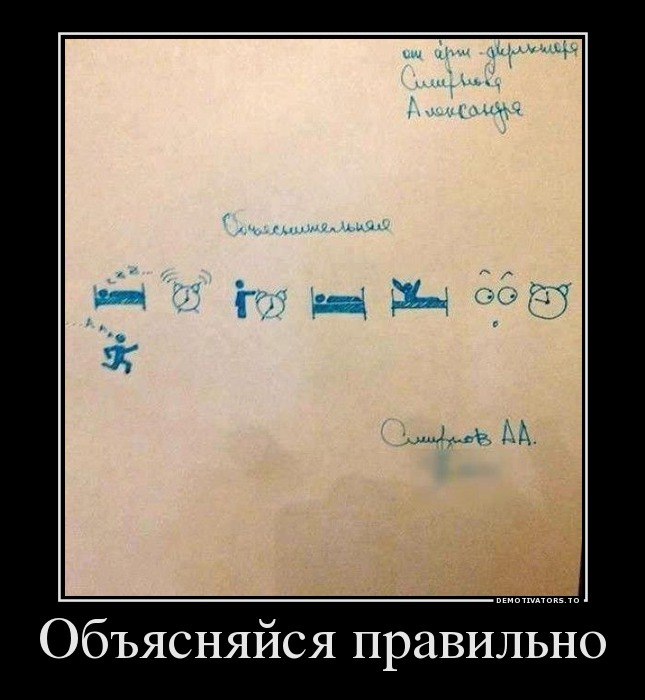 от арт-директора
Смирнова
Александра
Объяснительная
zzz...
Смирнов АА.
DEMOTIVATORS.TO
Объясняйся правильно